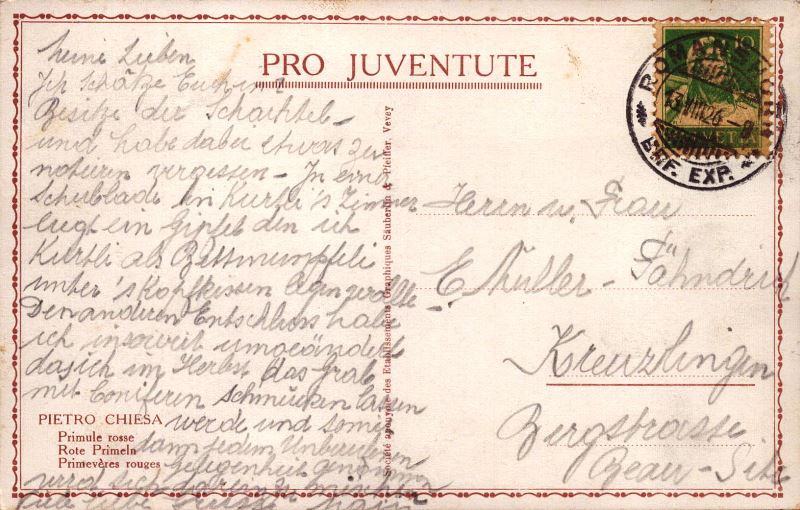 PRO JUVENTUTE
Meine Lieben
Ich schätze Euch im
Besitze der Schachtel -
und habe dabei etwas zu
notieren vergessen - In einer
Schublade in Kurtli's Zimmer
liegt ein Gipfel den ich
Kurtli als Bettmümpfeli
unter s Kopfkissen legen wolle
Den anderen Entschluss habe
ich insoweit umgeändert
das ich im Herbst das Grab
mit Coniferen schmücken lassen
werde und somit
jedem Unberufenen
gelegenheit genommen
wird sich darein zu mischen
PIETRO CHIESA
Primule rosse
Rote Primeln
Primevères rouges
Société anonyme des Etablissements Graphiques Säuberlin & Pfeiffer, Vevey
ROMANSHORN
13.VIII.26.
BRF. EXP.
10
HELVETIA
Herrn u. Frau
E Muller - Fähndrich
Kreuzlingen
Bergstrasse
Beau-Site